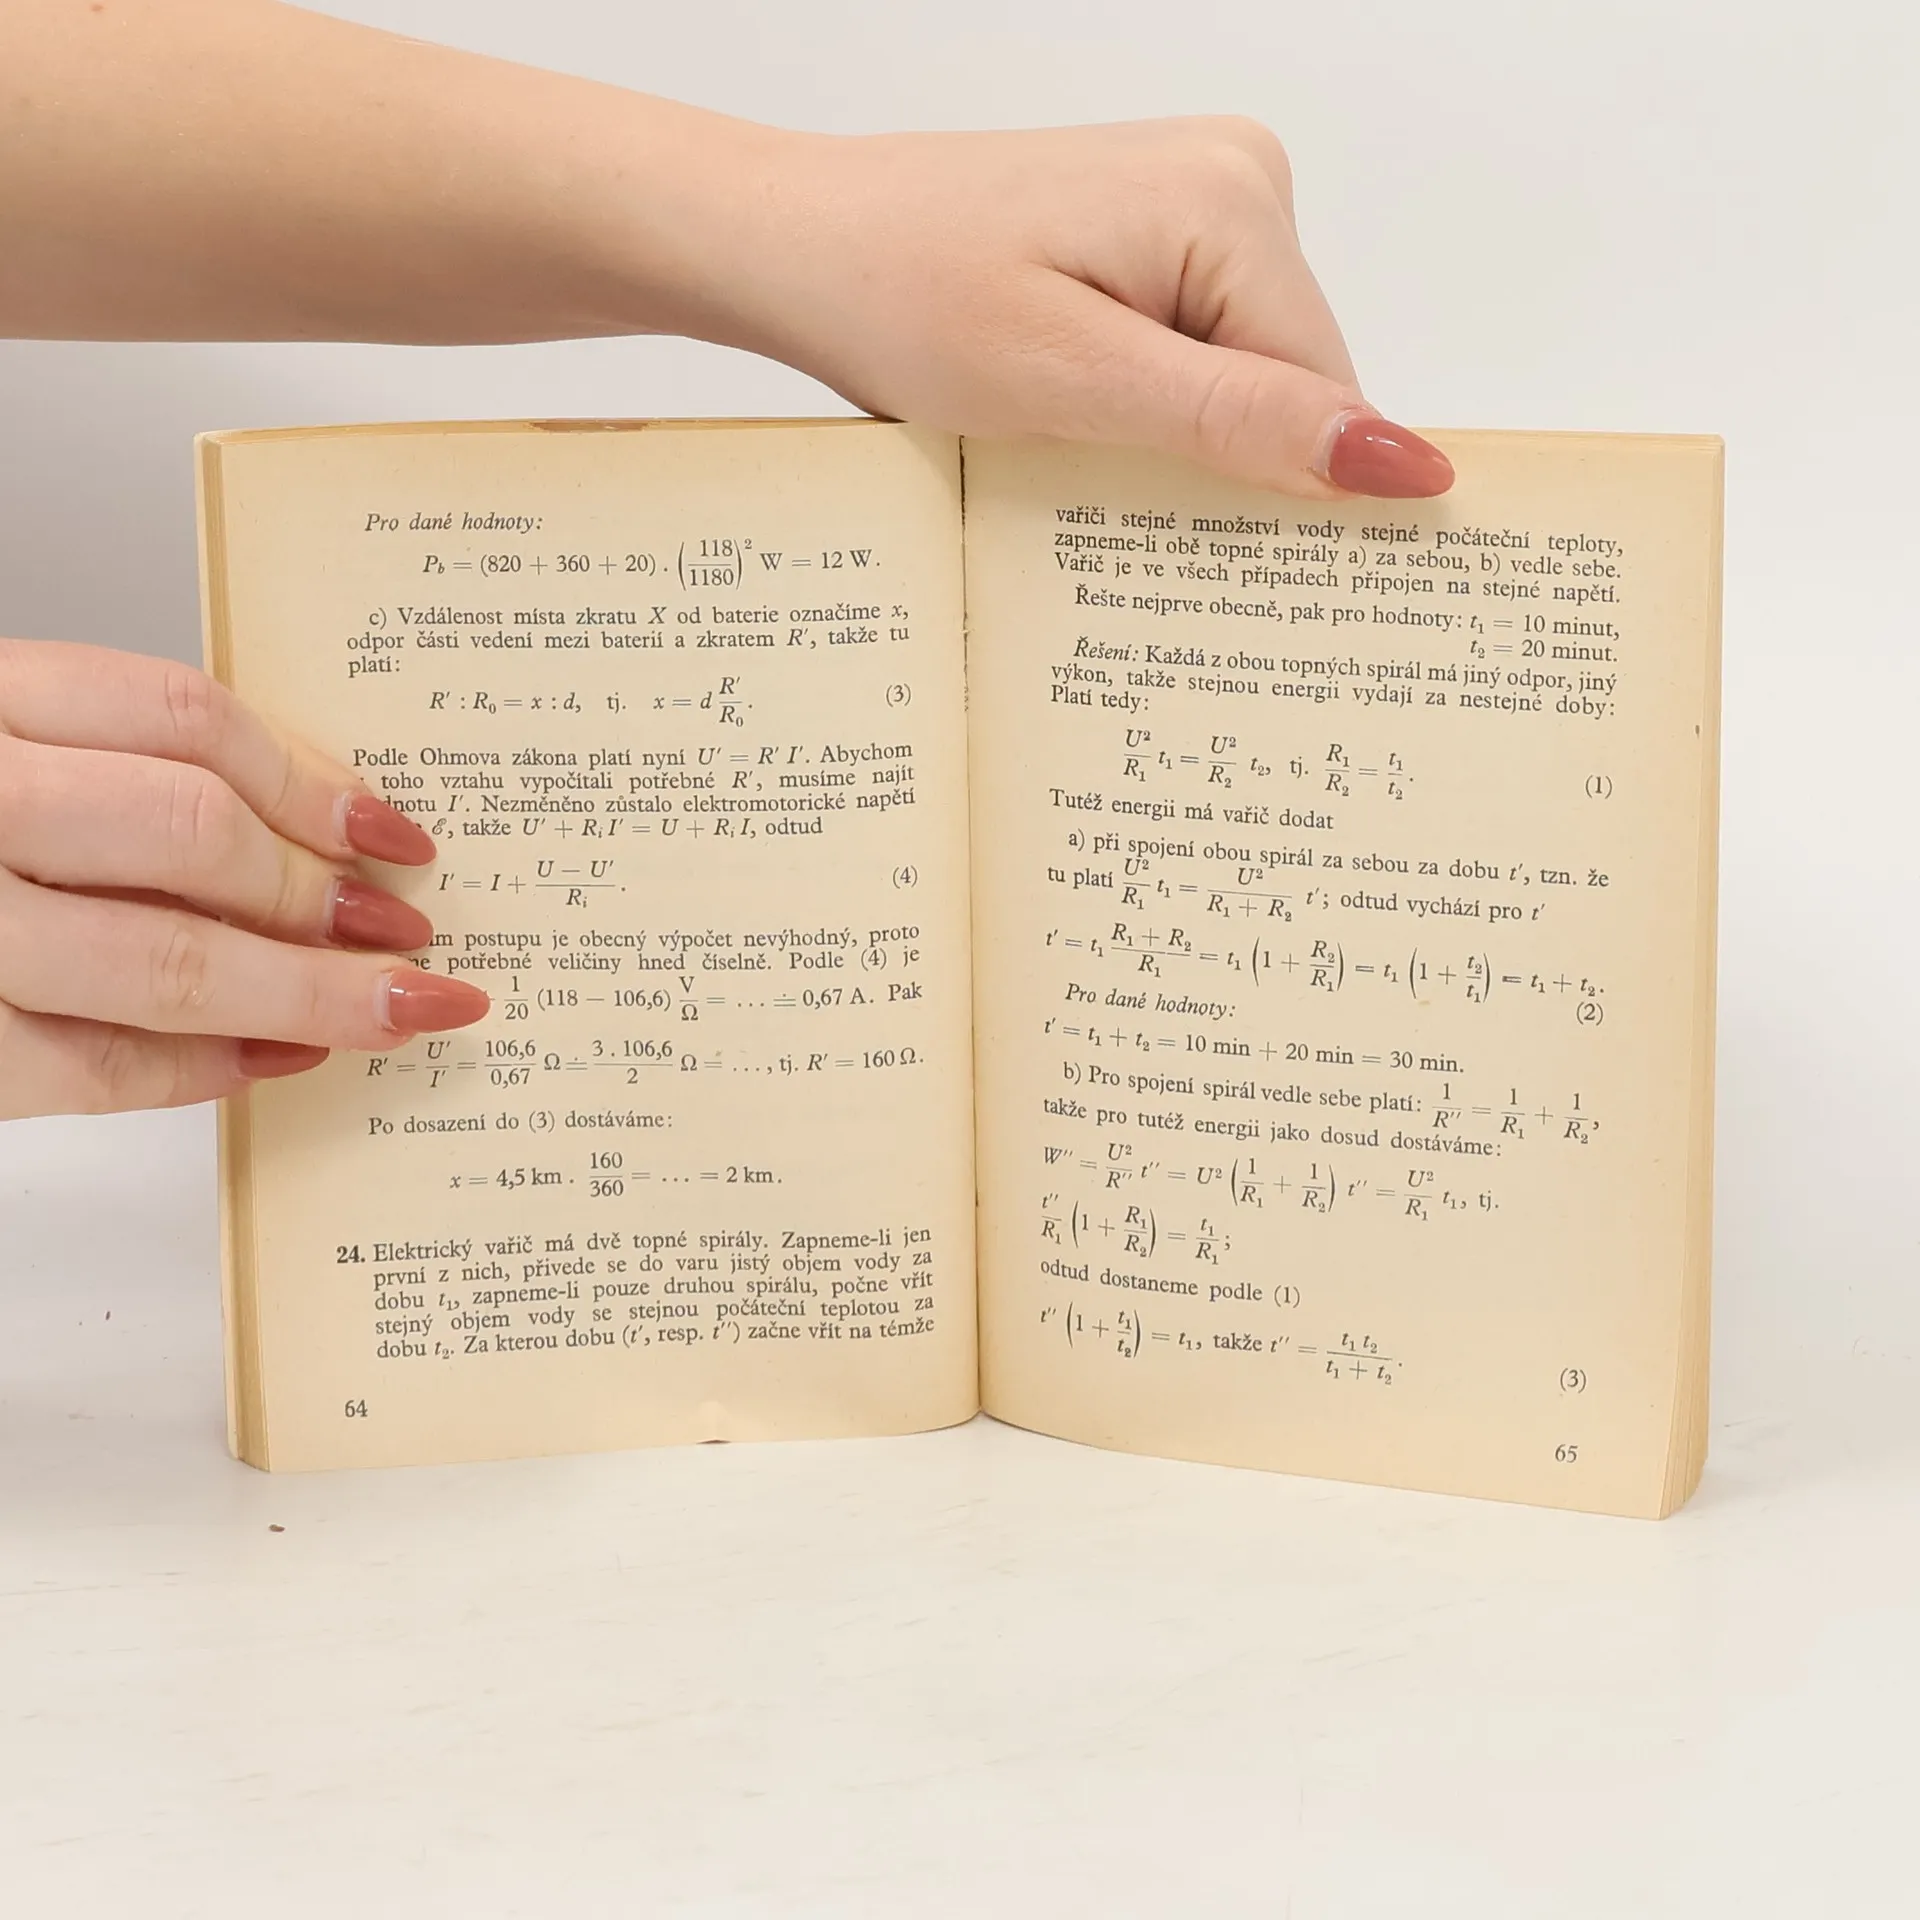 Pro dané hodnoty:
P_b = (820 + 360 + 20) . (118/1180)² W = 12 W.
c) Vzdálenost místa zkratu X od baterie označíme x,
odpor části vedení mezi baterií a zkratem R′, takže tu
platí:
R′ : R₀ = x : d, tj. x = d R′/R₀. (3)
Podle Ohmova zákona platí nyní U′ = R′ I′. Abychom
toho vztahu vypočítali potřebné R′, musíme najít
I′. Nezměněno zůstalo elektromotorické napětí
ℰ, takže U′ + Rᵢ I′ = U + Rᵢ I, odtud
I′ = I + (U − U′)/Rᵢ. (4)
postupu je obecný výpočet nevýhodný, proto
potřebné veličiny hned číselně. Podle (4) je
1/20 (118 − 106,6) V/Ω = ... ≐ 0,67 A. Pak
R′ = U′/I′ = 106,6/0,67 Ω ≐ 3 . 106,6/2 Ω = ..., tj. R′ = 160 Ω.
Po dosazení do (3) dostáváme:
x = 4,5 km . 160/360 = ... = 2 km.
24. Elektrický vařič má dvě topné spirály. Zapneme-li jen
první z nich, přivede se do varu jistý objem vody za
dobu t₁, zapneme-li pouze druhou spirálu, počne vřít
stejný objem vody se stejnou počáteční teplotou za
dobu t₂. Za kterou dobu (t′, resp. t″) začne vřít na témže
64
vařiči stejné množství vody stejné počáteční teploty,
zapneme-li obě topné spirály a) za sebou, b) vedle sebe.
Vařič je ve všech případech připojen na stejné napětí.
Řešte nejprve obecně, pak pro hodnoty: t₁ = 10 minut,
t₂ = 20 minut.
Řešení: Každá z obou topných spirál má jiný odpor, jiný
výkon, takže stejnou energii vydají za nestejné doby:
Platí tedy:
U²/R₁ t₁ = U²/R₂ t₂, tj. R₁/R₂ = t₁/t₂. (1)
Tutéž energii má vařič dodat
a) při spojení obou spirál za sebou za dobu t′, tzn. že
tu platí U²/R₁ t₁ = U²/(R₁ + R₂) t′; odtud vychází pro t′
t′ = t₁ (R₁ + R₂)/R₁ = t₁ (1 + R₂/R₁) = t₁ (1 + t₂/t₁) = t₁ + t₂.
(2)
Pro dané hodnoty:
t′ = t₁ + t₂ = 10 min + 20 min = 30 min.
b) Pro spojení spirál vedle sebe platí: 1/R″ = 1/R₁ + 1/R₂,
takže pro tutéž energii jako dosud dostáváme:
W″ = U²/R″ t″ = U² (1/R₁ + 1/R₂) t″ = U²/R₁ t₁, tj.
t″/R₁ (1 + R₁/R₂) = t₁/R₁;
odtud dostaneme podle (1)
t″ (1 + t₁/t₂) = t₁, takže t″ = t₁ t₂/(t₁ + t₂). (3)
65